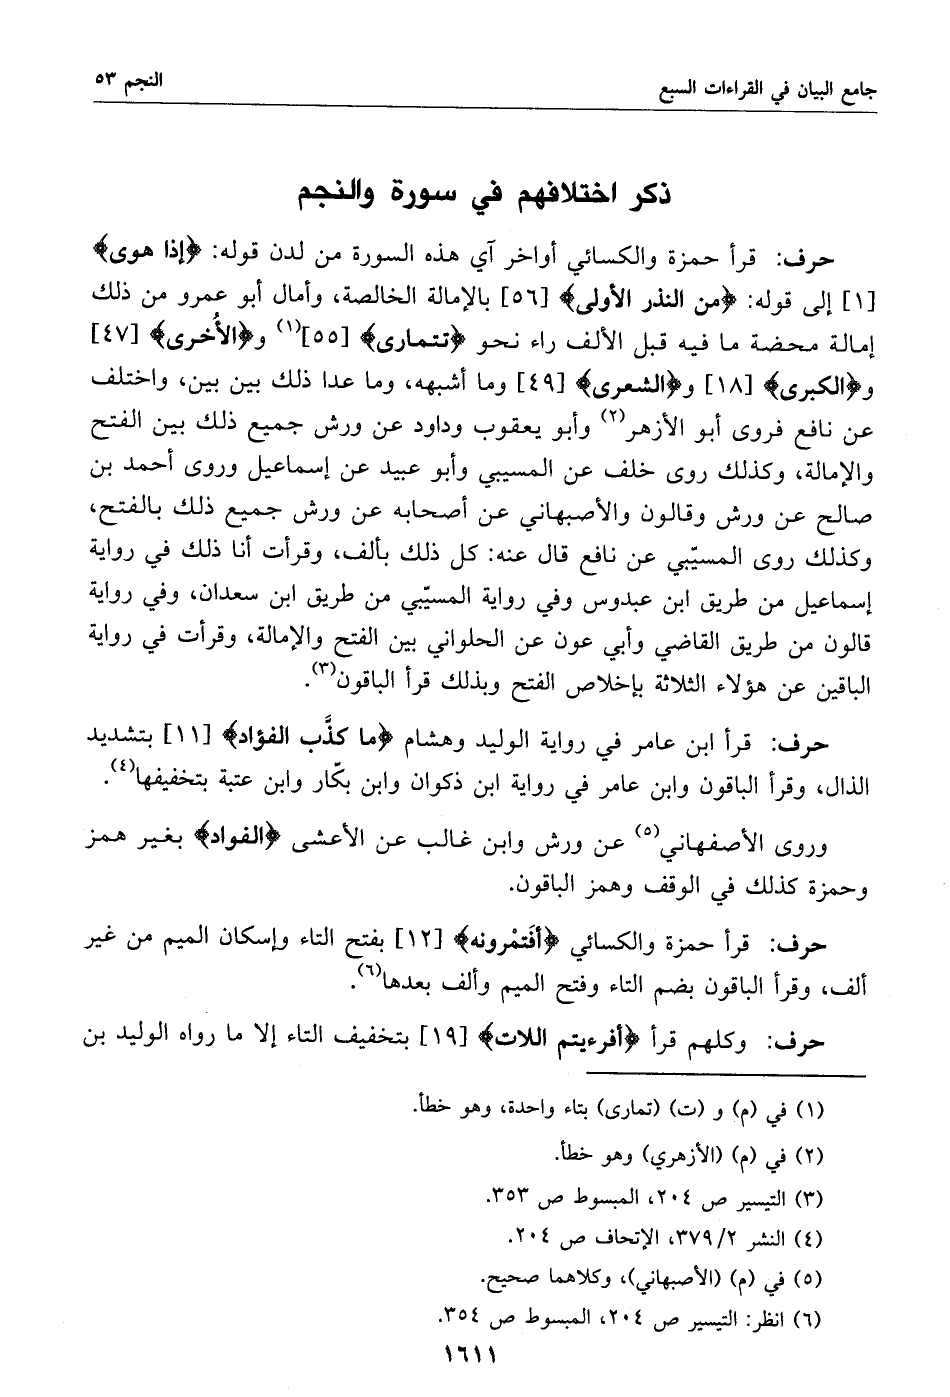 جامع البيان في القراءات السبع
النجم ٥٣
ذكر اختلافهم في سورة والنجم
حرف: قرأ حمزة والكسائي أواخر آي هذه السورة من لدن قوله: ﴿إذا هوى﴾
[١] إلى قوله: ﴿من النذر الأولى﴾ [٥٦] بالإمالة الخالصة، وأمال أبو عمرو من ذلك
إمالة محضة ما فيه قبل الألف راء نحو ﴿تتمارى﴾ [٥٥](١) و﴿الأُخرى﴾ [٤٧]
و﴿الكبرى﴾ [١٨] و﴿الشعرى﴾ [٤٩] وما أشبهه، وما عدا ذلك بين بين، واختلف
عن نافع فروى أبو الأزهر(٢) وأبو يعقوب وداود عن ورش جميع ذلك بين الفتح
والإمالة، وكذلك روى خلف عن المسيبي وأبو عبيد عن إسماعيل وروى أحمد بن
صالح عن ورش وقالون والأصبهاني عن أصحابه عن ورش جميع ذلك بالفتح،
وكذلك روى المسيّبي عن نافع قال عنه: كل ذلك بألف، وقرأت أنا ذلك في رواية
إسماعيل من طريق ابن عبدوس وفي رواية المسيّبي من طريق ابن سعدان، وفي رواية
قالون من طريق القاضي وأبي عون عن الحلواني بين الفتح والإمالة، وقرأت في رواية
الباقين عن هؤلاء الثلاثة بإخلاص الفتح وبذلك قرأ الباقون(٣).
حرف: قرأ ابن عامر في رواية الوليد وهشام ﴿ما كذَّب الفؤاد﴾ [١١] بتشديد
الذال، وقرأ الباقون وابن عامر في رواية ابن ذكوان وابن بكّار وابن عتبة بتخفيفها(٤).
وروى الأصفهاني(٥) عن ورش وابن غالب عن الأعشى ﴿الفواد﴾ بغير همز
وحمزة كذلك في الوقف وهمز الباقون.
حرف: قرأ حمزة والكسائي ﴿أفَتمْرونه﴾ [١٢] بفتح التاء وإسكان الميم من غير
ألف، وقرأ الباقون بضم التاء وفتح الميم وألف بعدها(٦).
حرف: وكلهم قرأ ﴿أفرءيتم اللات﴾ [١٩] بتخفيف التاء إلا ما رواه الوليد بن
(١) في (م) و (ت) (تمارى) بتاء واحدة، وهو خطأ.
(٢) في (م) (الأزهري) وهو خطأ.
(٣) التيسير ص ٢٠٤، المبسوط ص ٣٥٣.
(٤) النشر ٢/ ٣٧٩، الإتحاف ص ٢٠٤.
(٥) في (م) (الأصبهاني)، وكلاهما صحيح.
(٦) انظر: التيسير ص ٢٠٤، المبسوط ص ٣٥٤.
١٦١١